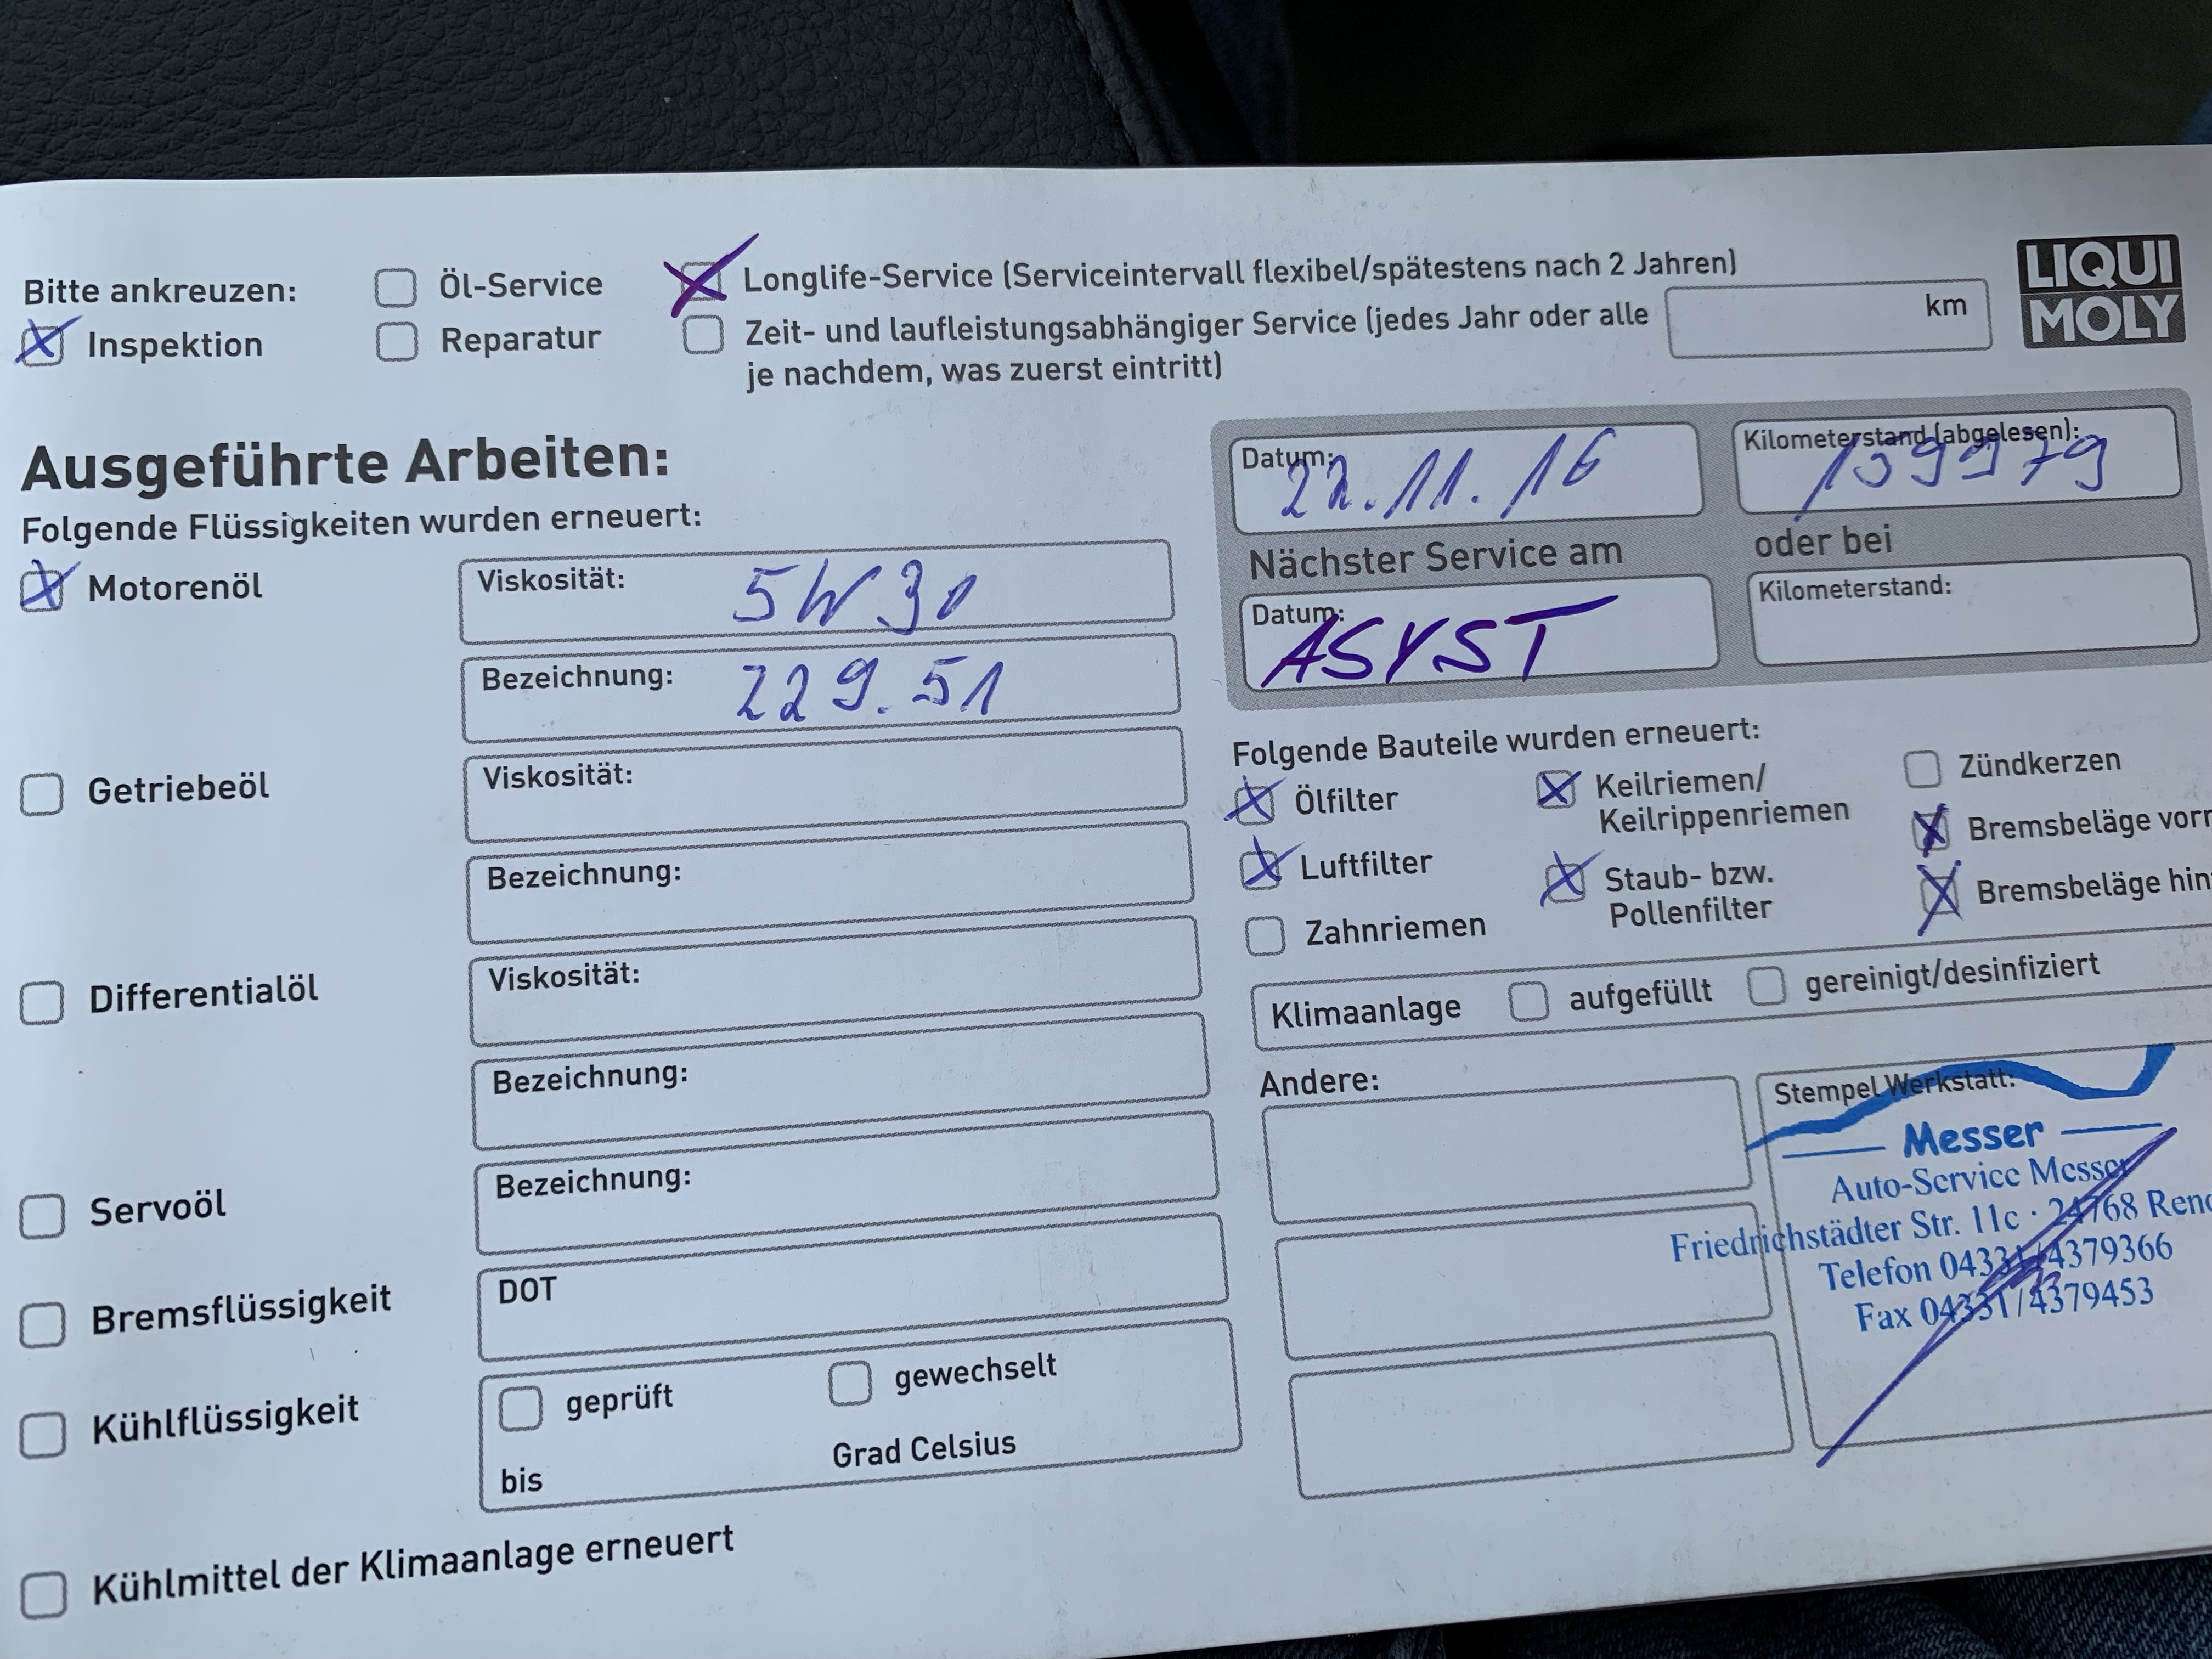 Bitte ankreuzen:
Öl-Service
Longlife-Service (Serviceintervall flexibel/spätestens nach 2 Jahren)
LIQUI
MOLY
Inspektion
Reparatur
Zeit- und laufleistungsabhängiger Service (jedes Jahr oder alle
km
je nachdem, was zuerst eintritt)
Ausgeführte Arbeiten:
Folgende Flüssigkeiten wurden erneuert:
Motorenöl
Viskosität: 5W30
Bezeichnung: 229.51
Getriebeöl
Viskosität:
Bezeichnung:
Differentialöl
Viskosität:
Bezeichnung:
Servoöl
Bezeichnung:
Bremsflüssigkeit
DOT
Kühlflüssigkeit
geprüft
gewechselt
bis
Grad Celsius
Kühlmittel der Klimaanlage erneuert
Datum: 22.11.16
Kilometerstand (abgelesen): 159979
Nächster Service am
oder bei
Datum: ASYST
Kilometerstand:
Folgende Bauteile wurden erneuert:
Ölfilter
Keilriemen/
Keilrippenriemen
Zündkerzen
Luftfilter
Staub- bzw.
Pollenfilter
Bremsbeläge vorn
Zahnriemen
Bremsbeläge hin
Klimaanlage
aufgefüllt
gereinigt/desinfiziert
Andere:
Stempel Werkstatt:
Messer
Auto-Service Messer
Friedrichstädter Str. 11c · 24768 Rend
Telefon 04331/4379366
Fax 04331/4379453